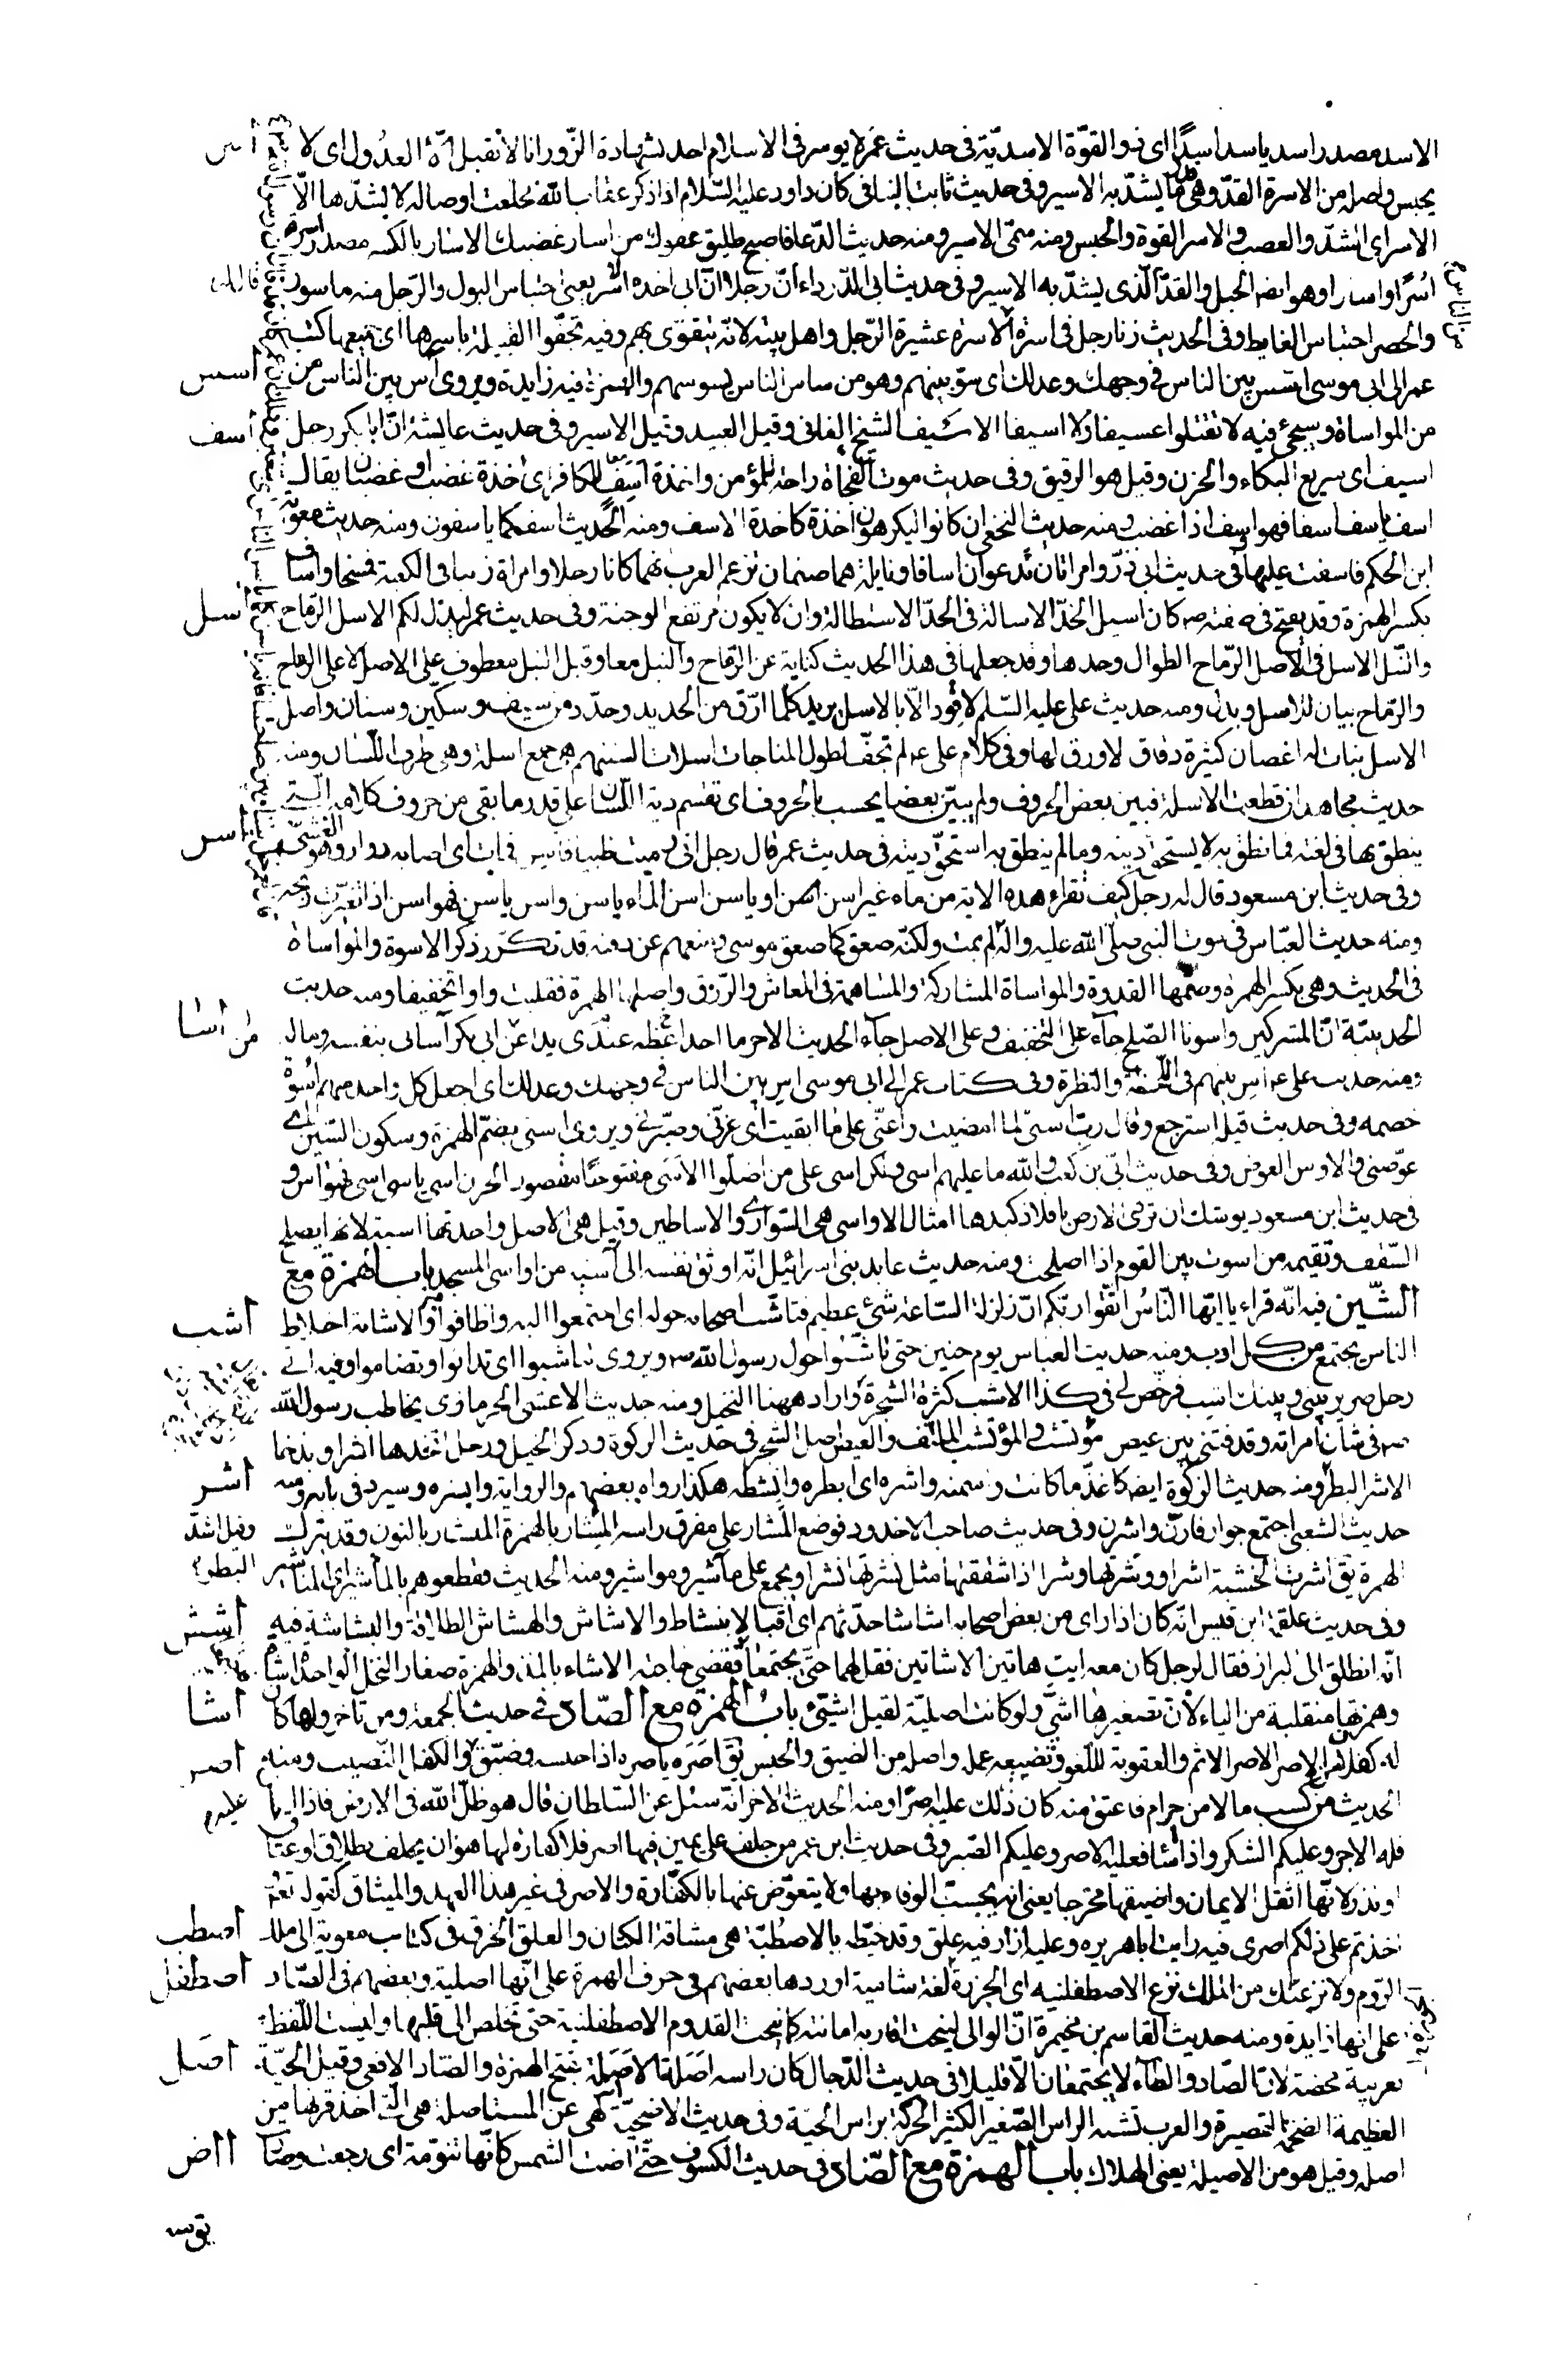 الاسد مصدر اسد ياسد اسدًا اى ذو القوّة الاسديّة فى حديث عمر لا يوسر فى الاسلام احد بشهادة الزّور انا لا نقبل الّا العدُول اى لا
يحبس واصله من الاسرة القدّ وهى ما يشدّ به الاسير وفى حديث ثابت البنانى كان داود عليه السّلام اذا ذكر عقاب الله تخلعت اوصاله لا يشدّها الّا
الاسر اى الشدّ والعصب والاسر القوة والحبس ومنه سمّى الاسير ومنه حديث الدّعا فاصبح طليق عفوك من اسار غضبك الاسار بالكسر مصدر اسرته
اسْرًا واسارا وهو ايضا الحبل والقدّ الّذى يشدّ به الاسير وفى حديث ابى الدّرداء انّ رجلا قال انّ ابى اخذه الاسر يعنى احتباس البول والرّجل منه ماسور
والحصر احتباس الغايط وفى الحديث زنا رجل فى اسرة الاسرة عشيرة الرّجل واهل بيته لانّه يتقوّى بهم وفيه تجفوا القبيلة باسرها اى جميعها كتب
عمر الى ابى موسى اسّس بين الناس فى وجهك وعدلك اى سوّ بينهم وهو من ساس الناس يسوسهم والهمزة فيه زايدة ويروى آس بين الناس من
من المواساة وسيجئ فيه لا تقتلوا عسيفا ولا اسيفا الاسيف الشيخ الفانى وقيل العبد وقيل الاسير وفى حديث عايشة انّ ابا بكر رجل
اسيف اى سريع البكاء والحزن وقيل هو الرقيق وفى حديث موت الفجاة راحة للمؤمن واخذة اسف للكافر اى اخذة غضب او غضبان يقال
اسف ياسف اسفا فهو اسف اذا غضب ومنه حديث النخعى ان كانوا ليكرهون اخذة كاخذة الاسف ومنه الحديث اسف كما ياسفون ومنه حديث معوية
ابن الحكم فاسفت عليها وفى حديث ابى ذرّ وامراتان تدعوان اسافا ونايلة هما صنمان تزعم العرب انهما كانا رجلا وامراة زنيا فى الكعبة فمسخا واساف
بكسر الهمزة وقد يفتح فى صفته ص كان اسيل الخدّ الاسالة فى الخدّ الاستطالة وان لا يكون مرتفع الوجنة وفى حديث عمر ليذل لكم الاسل الرّماح
والنّبل الاسل فى الاصل الرّماح الطوال وحدها وقد جعلها فى هذا الحديث كناية عن الرّماح والنبل معا وقيل النبل معطوف على الاصل لا على الرماح
والرّماح بيان للاسل وبدل ومنه حديث على عليه السّلم لا قود الّا بالاسل يريد كلما ارّق من الحديد وحدّد من سيف وسكّين وسنان واصل
الاسل نبات له اغصان كثيرة دقاق لا ورق لها وفى كلام على ع لم تجفّ لطول المناجات اسلات السنتهم هى جمع اسلة وهى طرف اللّسان ومنه
حديث مجاهد ان قطعت الاسلة فبين بعض الحروف ولم يبيّن بعضا يحسب بالحروف اى تقسم دية اللّسان على قدر ما بقى من حروف كلامه التى
ينطق بها فى لغته فما نطق به لا يستحق ديته وما لم ينطق به استحقّ ديته فى حديث عمر قال رجل انى رميت ظبيا فاسن فمات اى اصابه دوار وهو الغشى
وفى حديث ابن مسعود قال له رجل كيف تقراء هذه الاية من ماء غير اسن او ياسن اسن الماء ياسن واسن ياسن فهو اسن اذا تغيّرت ريحه
ومنه حديث العبّاس فى موت النبى صلى الله عليه وآله لم يمت ولكنّه صعق كما صعق موسى ومنعهم عن دفنه قد تكرّر ذكر الاسوة والمواساة
فى الحديث وهى بكسر الهمزة وضمّها القدوة والمواساة المشاركة والمساهمة فى المعاش والرّزق واصلها الهمزة فقلبت واوا تخفيفا ومنه حديث
الحديبيّة انّ المشركين واسونا الصّلح جآء على التخفيف وعلى الاصل جآء الحديث الاخر ما احد اعظم عندى يدا عن ابى بكر آسانى بنفسه وماله
ومنه حديث على ع اس بينهم فى اللحظة والنظرة وفى كتاب عمر الى ابى موسى اس بين الناس فى وجهك وعدلك اى اجعل كل واحد منهم اسْوة
خصمه وفى حديث قيلة استرجع وقال ربّ اسنى لما امضيت واعنّى على ما ابقيت اى عزّنى وصبّرنى ويروى اسنى بضمّ الهمزة وسكون السّين اى
عوّضنى والاوس العوض وفى حديث ابىّ بن كعب والله ما عليهم اسى ولكن اسى على من اضلّوا الاسَى مفتوحًا مقصورا الحزن اسى ياسى اسى فهو اس و
فى حديث ابن مسعود يوشك ان ترمى الارض بافلاذ كبدها امثال الاواسى هى السّوارى والاساطين وقيل هى الاصل واحدتها اسية لانها يصلح
السّقف وتقيمه من اسوت بين القوم اذا اصلحت ومنه حديث عابد بنى اسرائيل انّه اوثق نفسه الى آسية من اواسى المسجد باب الهمزة مع
الشّين فيه انّه قراء يا ايّها النّاسُ اتّقوا ربّكم انّ زلزلة السّاعة شىء عظيم فتاشّب اصحابه حوله اى اجتمعوا اليه واطافوا به والاشابة اخلاط
الناس يجتمع من كل اوب ومنه حديث العباس يوم حنين حتى تاشّبوا حول رسول الله ص ويروى تناشبوا اى تدانوا وتضاموا وفيه انى
رجل ضرير بينى وبينك اشب فرخّص لى فى كذا الاشب كثرة الشجرة واراد ههنا النخيل ومنه حديث الاعشى الحرمازى يخاطب رسول الله
ص فى شان امراته وقد فتنى بين عيص مؤتشب المؤتشب الملتف والعيص اصل الشجر فى حديث الزكوة وذكر الخيل ورجل اتخذها اشرا وبذخا
الاشر البطر ومنه حديث الزكوة ايضا كاغذّ ما كانت واسمنه واشره اى ابطره وانشطه هكذا رواه بعضهم والرواية وابشره وسيرد فى بابه ومنه
حديث الشعبى اجتمع جوار فارنّ واشرن وفى حديث صاحب الاخدود فوضع المشار على مفرق راسه المئشار بالهمزة المنشار بالنون وقد يترك
الهمزة يق اشرت الخشبة اشرا ووشرتها وشرا اذا شققتها مثل نشرتها نشرا ويجمع على مآشير ومواشير ومنه الحديث فقطعوهم بالمآشير اى المناشير
وفى حديث علقمة ابن قيس انّه كان اذا راى من بعض اصحابه اشاشا حدّثهم اى اقبالا بنشاط والاشاش والهشاش الطلاقة والبشاشة فيه
انّه انطلق الى البراز فقال لرجل كان معه ايت هاتين الاشاتين فقل لهما حتّى يجتمعا فقضى حاجته الاشاء بالمدّ والهمزة صغار النخل الواحدة اشاة
وهمزتها منقلبة من الياء لانّ تصغيرها اشىّ ولو كانت اصليّة لقيل اشيّئ بابُ الهمزة مع الصّاد فى حديث الجمعة ومن تاخر ولغا كان
له كفلان من الاصر الاصر الاثم والعقوبة للّغو وتضييعه عمله واصله من الضيق والحبس يق اَصَرَه ياصره اذا حبسه وضيّق والكفل النّصيب ومنه
الحديث من كسب مالا من حرام فاعتق منه كان ذلك عليه اصرًا ومنه الحديث الاخر انّه سئل عن السّلطان قال هو ظلّ الله فى الارض فاذا احسن
فله الاجر وعليكم الشكر واذا اسآ فعليه الاصر وعليكم الصّبر وفى حديث ابن عمر من حلف على يمين فيها اصر فلا كفارة لها هو ان يحلف بطلاق او عتاق
او نذر لانّها اثقل الايمان واضيقها مخرجا يعنى انه يجب الوفاء بها ولا يتعوّض عنها بالكفّارة والاصر فى غير هذا العهد والميثاق كقوله تع
اخذتم على ذلكم اصرى فيه رايت اباهريره وعليه ازار فيه علق وقد خيّطه بالاصطُبّة هى مشاقة الكتان والعلق الخرق فى كتاب معوية الى ملك
الرّوم ولانزعنّك من الملك نزع الاصطفلينة اى الجزرة لغة شامية اوردها بعضهم فى حرف الهمزة على انّها اصلية وبعضهم فى الصّاد
على انها زايدة ومنه حديث القاسم بن مخيمرة انّ الوالى لينحت اقاربه امانته كما ينحت القدوم الاصطفلينة حتى تخلص الى قلبها وليست اللّفظة
بعربية محضة لانّ الصّاد والطآء لا يجتمعان الّا قليلا فى حديث الدّجال كان راسه اصَلة الاصَلة بفتح الهمزة والصّاد الافعى وقيل الحيّة
العظيمة الضخمة القصيرة والعرب تشبه الراس الصّغير الكثير الحركة براس الحيّة وفى حديث الاضحيّة نهى عن المستاصلة هى الّتى اخذ قرنها من
اصله وقيل هو من الاصيلة يعنى الهلاك باب الهمزة مع الضّاد فى حديث الكسوف حتّى اضت الشمس كانّها تنوّمة اى رجعت وصارت
اسس
اسف
اسل
اسن
اسا
اشب
اشر
اشش
اشا
اصر
اصطب
اصطفل
اصل
اض